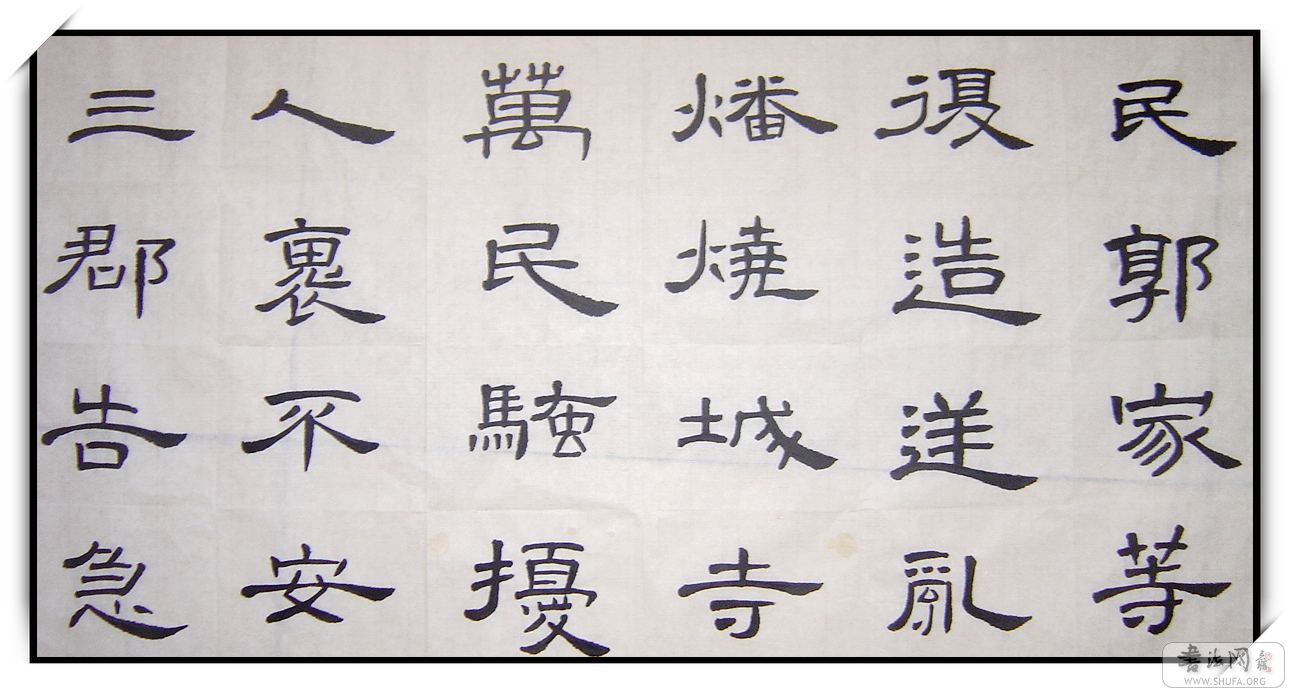 民郭家等
復造逆亂
燔燒城寺
萬民騷擾
人裹不安
三郡告急
書法网
WWW.SHUFA.ORG